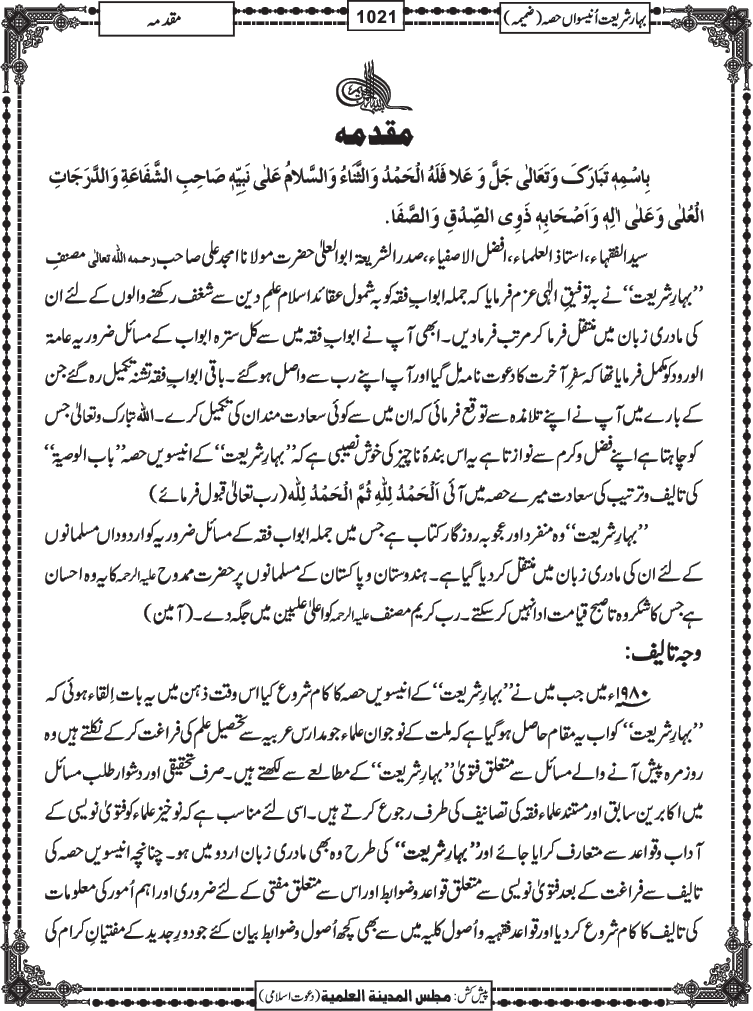 بہار شریعت اُنیسواں حصہ (ضمیمہ)
1021
مقدمہ
مقدمہ
بِاسْمِہٖ تَبَارَکَ وَتَعَالٰی جَلَّ وَ عَلَا فَلَہُ الْحَمْدُ وَالثَّنَاءُ وَالسَّلَامُ عَلٰی نَبِیِّہٖ صَاحِبِ الشَّفَاعَۃِ وَالدَّرَجَاتِ
الْعُلٰی وَعَلٰی اٰلِہٖ وَاَصْحَابِہٖ ذَوِی الصِّدْقِ وَالصَّفَا.
سید الفقہاء، استاذ العلماء، افضل الاصفیاء، صدر الشریعۃ ابو العلیٰ حضرت مولانا امجد علی صاحب رحمہ اللہ تعالٰی مصنفِ
’’بہارِ شریعت‘‘ نے بہ توفیقِ الٰہی عزم فرمایا کہ جملہ ابوابِ فقہ کو بہ شمول عقائد اسلام علمِ دین سے شغف رکھنے والوں کے لئے ان
کی مادری زبان میں منتقل فرما کر مرتب فرمادیں۔ ابھی آپ نے ابوابِ فقہ میں سے کل سترہ ابواب کے مسائل ضروریہ عامۃ
الورود کو مکمل فرمایا تھا کہ سفرِ آخرت کا دعوت نامہ مل گیا اور آپ اپنے رب سے واصل ہوگئے۔ باقی ابوابِ فقہ تشنہ تکمیل رہ گئے جن
کے بارے میں آپ نے اپنے تلامذہ سے توقع فرمائی کہ ان میں سے کوئی سعادت مند ان کی تکمیل کرے۔ اللہ تبارک وتعالٰی جس
کو چاہتا ہے اپنے فضل و کرم سے نوازتا ہے یہ اس بندۂ ناچیز کی خوش نصیبی ہے کہ ’’بہارِ شریعت‘‘ کے انیسویں حصہ ’’باب الوصیۃ‘‘
کی تالیف و ترتیب کی سعادت میرے حصہ میں آئی اَلْحَمْدُ لِلّٰہِ ثُمَّ الْحَمْدُ لِلّٰہ (رب تعالیٰ قبول فرمائے)
’’بہارِ شریعت‘‘ وہ منفرد اور عجوبہ روزگار کتاب ہے جس میں جملہ ابواب فقہ کے مسائل ضروریہ کو اردو داں مسلمانوں
کے لئے ان کی مادری زبان میں منتقل کردیا گیا ہے۔ ہندوستان و پاکستان کے مسلمانوں پر حضرت ممدوح علیہ الرحمہ کا یہ وہ احسان
ہے جس کا شکر وہ تا صبح قیامت ادا نہیں کر سکتے۔ رب کریم مصنف علیہ الرحمہ کو اعلیٰ علیین میں جگہ دے۔ (آمین)
وجہ تالیف:
۱۹۸۰ء میں جب میں نے ’’بہارِ شریعت‘‘ کے انیسویں حصہ کا کام شروع کیا اس وقت ذہن میں یہ بات اِلقاء ہوئی کہ
’’بہارِ شریعت‘‘ کو اب یہ مقام حاصل ہو گیا ہے کہ ملت کے نوجوان علماء جو مدارس عربیہ سے تحصیل علم کی فراغت کرکے نکلتے ہیں وہ
روزمرہ پیش آنے والے مسائل سے متعلق فتویٰ ’’بہارِ شریعت‘‘ کے مطالعے سے لکھتے ہیں۔ صرف تحقیقی اور دشوار طلب مسائل
میں اکابرین سابق اور مستند علماء فقہ کی تصانیف کی طرف رجوع کرتے ہیں۔ اسی لئے مناسب ہے کہ نو خیز علماء کو فتویٰ نویسی کے
آداب و قواعد سے متعارف کرایا جائے اور ’’بہارِ شریعت‘‘ کی طرح وہ بھی مادری زبان اردو میں ہو۔ چنانچہ انیسویں حصہ کی
تالیف سے فراغت کے بعد فتویٰ نویسی سے متعلق قواعد و ضوابط اور اس سے متعلق مفتی کے لئے ضروری اور اہم اُمور کی معلومات
کی تالیف کا کام شروع کردیا اور قواعد فقہیہ و اُصول کلیہ میں سے بھی کچھ اُصول و ضوابط بیان کئے جو دورِ جدید کے مفتیانِ کرام کی
پیش کش: مجلس المدینۃ العلمیۃ (دعوت اسلامی)